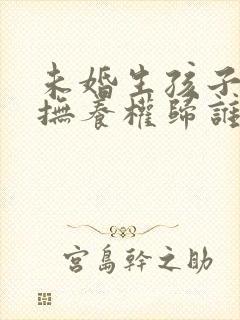 未婚生孩子
撫養權歸誰
宮島幹之助